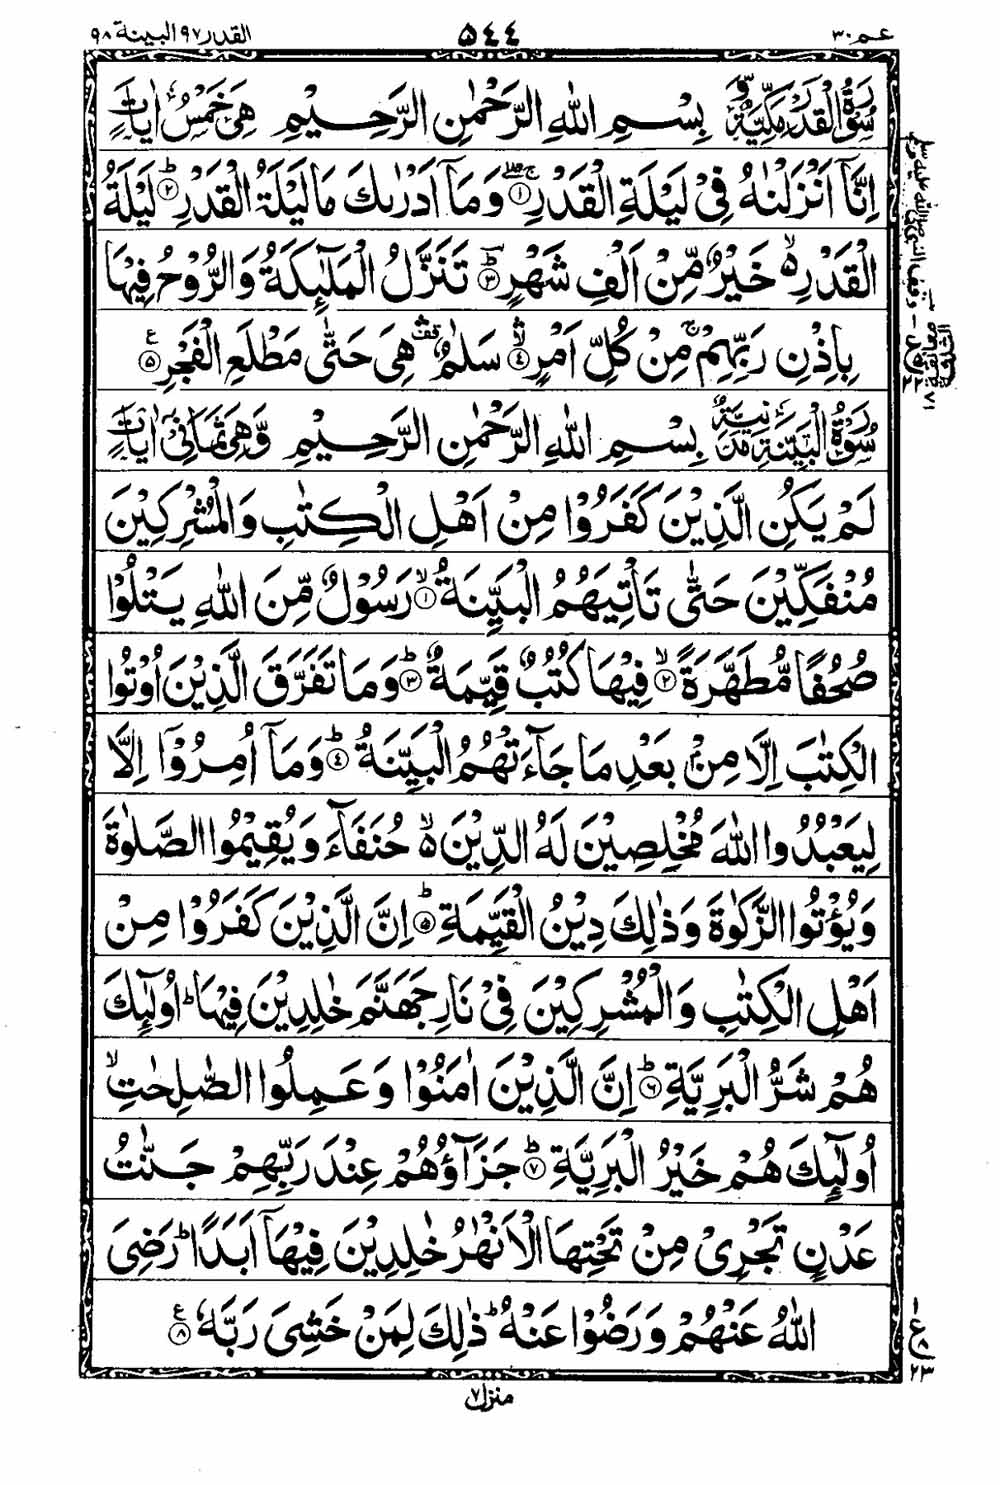 عم ٣٠ ٥٤٤ القدر ٩٧ البينة ٩٨
سُوْرَةُ الْقَدْرِ مَكِّيَّةٌ وَّ بِسْمِ اللّٰهِ الرَّحْمٰنِ الرَّحِيْمِ هِيَ خَمْسُ اٰيَاتٍ
اِنَّاۤ اَنْزَلْنٰهُ فِيْ لَيْلَةِ الْقَدْرِ ۚۖ‏﴿۱﴾ وَمَاۤ اَدْرٰىكَ مَا لَيْلَةُ الْقَدْرِ ؕ‏﴿۲﴾ لَيْلَةُ
الْقَدْرِ ۙ۬ خَيْرٌ مِّنْ اَلْفِ شَهْرٍ ؕؔ‏﴿۳﴾ تَنَزَّلُ الْمَلٰٓئِكَةُ وَالرُّوْحُ فِيْهَا
بِاِذْنِ رَبِّهِمْ ۚ مِنْ كُلِّ اَمْرٍ ۙۛ‏﴿۴﴾ سَلٰمٌ ۛ قف هِيَ حَتّٰى مَطْلَعِ الْفَجْرِ ﴿۵﴾ ع
سُوْرَةُ الْبَيِّنَةِ مَدَنِيَّةٌ بِسْمِ اللّٰهِ الرَّحْمٰنِ الرَّحِيْمِ وَّهِيَ ثَمَانِيْ اٰيَاتٍ
لَمْ يَكُنِ الَّذِيْنَ كَفَرُوْا مِنْ اَهْلِ الْكِتٰبِ وَالْمُشْرِكِيْنَ
مُنْفَكِّيْنَ حَتّٰى تَاْتِيَهُمُ الْبَيِّنَةُ ۙ‏﴿۱﴾ رَسُوْلٌ مِّنَ اللّٰهِ يَتْلُوْا
صُحُفًا مُّطَهَّرَةً ۙ‏﴿۲﴾ فِيْهَا كُتُبٌ قَيِّمَةٌ ؕ‏﴿۳﴾ وَمَا تَفَرَّقَ الَّذِيْنَ اُوْتُوا
الْكِتٰبَ اِلَّا مِنْۢ بَعْدِ مَا جَآءَتْهُمُ الْبَيِّنَةُ ؕ‏﴿۴﴾ وَمَاۤ اُمِرُوْۤا اِلَّا
لِيَعْبُدُوا اللّٰهَ مُخْلِصِيْنَ لَهُ الدِّيْنَ ۙ۬ حُنَفَآءَ وَيُقِيْمُوا الصَّلٰوةَ
وَيُؤْتُوا الزَّكٰوةَ وَذٰلِكَ دِيْنُ الْقَيِّمَةِ ؕ‏﴿۵﴾ اِنَّ الَّذِيْنَ كَفَرُوْا مِنْ
اَهْلِ الْكِتٰبِ وَالْمُشْرِكِيْنَ فِيْ نَارِ جَهَنَّمَ خٰلِدِيْنَ فِيْهَا ؕ اُولٰٓئِكَ
هُمْ شَرُّ الْبَرِيَّةِ ؕ‏﴿۶﴾ اِنَّ الَّذِيْنَ اٰمَنُوْا وَعَمِلُوا الصّٰلِحٰتِ ۙ
اُولٰٓئِكَ هُمْ خَيْرُ الْبَرِيَّةِ ؕ‏﴿۷﴾ جَزَآؤُهُمْ عِنْدَ رَبِّهِمْ جَنّٰتُ
عَدْنٍ تَجْرِيْ مِنْ تَحْتِهَا الْاَنْهٰرُ خٰلِدِيْنَ فِيْهَاۤ اَبَدًا ؕ رَضِيَ
اللّٰهُ عَنْهُمْ وَرَضُوْا عَنْهُ ؕ ذٰلِكَ لِمَنْ خَشِيَ رَبَّهٗ ﴿۸﴾ ع
منزل ٧